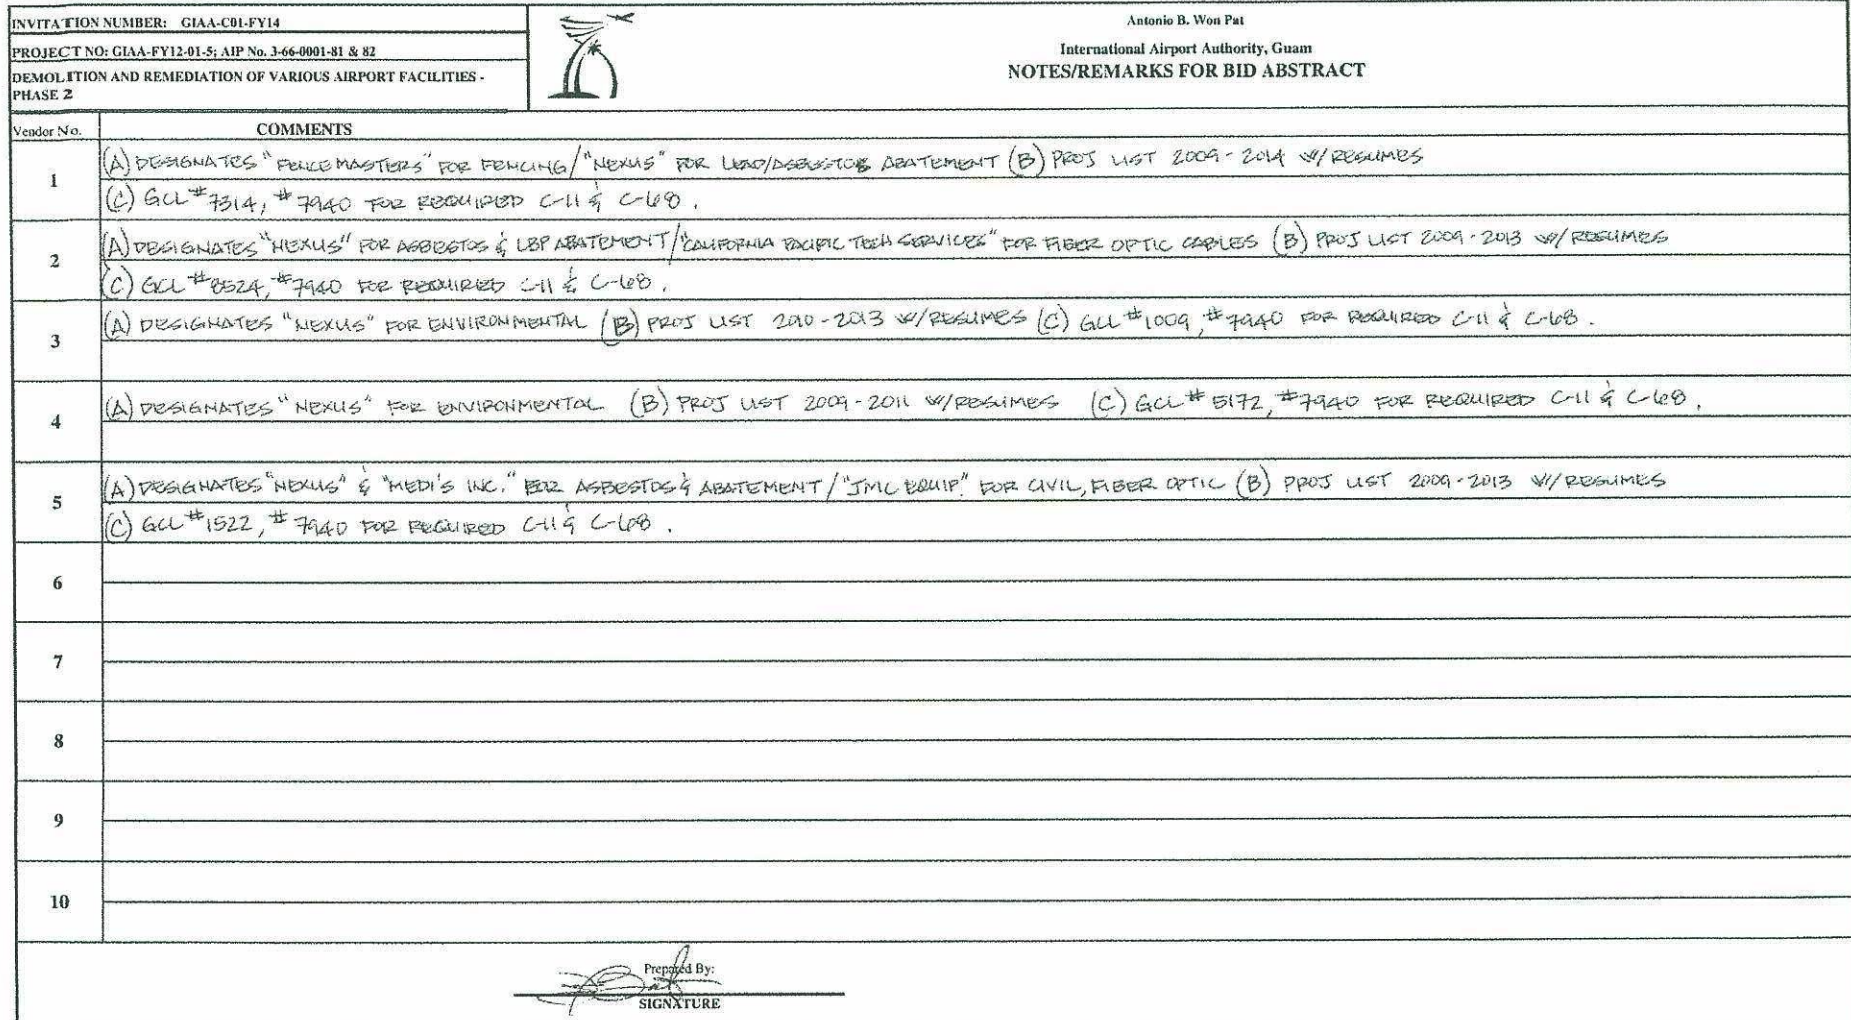 INVITATION NUMBER: GIAA-C01-FY14
PROJECT NO: GIAA-FY12-01-5; AIP No. 3-66-0001-81 & 82
DEMOLITION AND REMEDIATION OF VARIOUS AIRPORT FACILITIES -
PHASE 2
Antonio B. Won Pat
International Airport Authority, Guam
NOTES/REMARKS FOR BID ABSTRACT
Vendor No. COMMENTS
1
(A) DESIGNATES "FENCEMASTERS" FOR FENCING/"NEXUS" FOR LEAD/ASBESTOS ABATEMENT (B) PROJ LIST 2009-2014 W/RESUMES
(C) GCL #7314, #7940 FOR REQUIRED C-11 & C-68.
2
(A) DESIGNATES "NEXUS" FOR ASBESTOS & LBP ABATEMENT/"CALIFORNIA PACIFIC TECH SERVICES" FOR FIBER OPTIC CABLES (B) PROJ LIST 2009-2013 W/RESUMES
(C) GCL #8524, #7940 FOR REQUIRED C-11 & C-68.
3
(A) DESIGNATES "NEXUS" FOR ENVIRONMENTAL (B) PROJ LIST 2010-2013 W/RESUMES (C) GCL #1009, #7940 FOR REQUIRED C-11 & C-68.
4
(A) DESIGNATES "NEXUS" FOR ENVIRONMENTAL (B) PROJ LIST 2009-2011 W/RESUMES (C) GCL #5172, #7940 FOR REQUIRED C-11 & C-68.
5
(A) DESIGNATES "NEXUS" & "MEDI'S INC." FOR ASBESTOS & ABATEMENT/"JMC EQUIP." FOR CIVIL, FIBER OPTIC (B) PROJ LIST 2009-2013 W/RESUMES
(C) GCL #1522, #7940 FOR REQUIRED C-11 & C-68.
6
7
8
9
10
Prepared By:
SIGNATURE